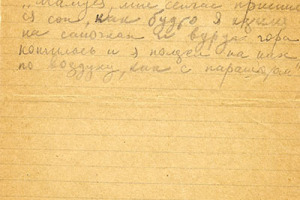 мне сейчас приснил
ся сон, как будто я ехала
на самокате и вдруг гора
кончилась и я полетела на нем
по воздуху, как с парашютом"